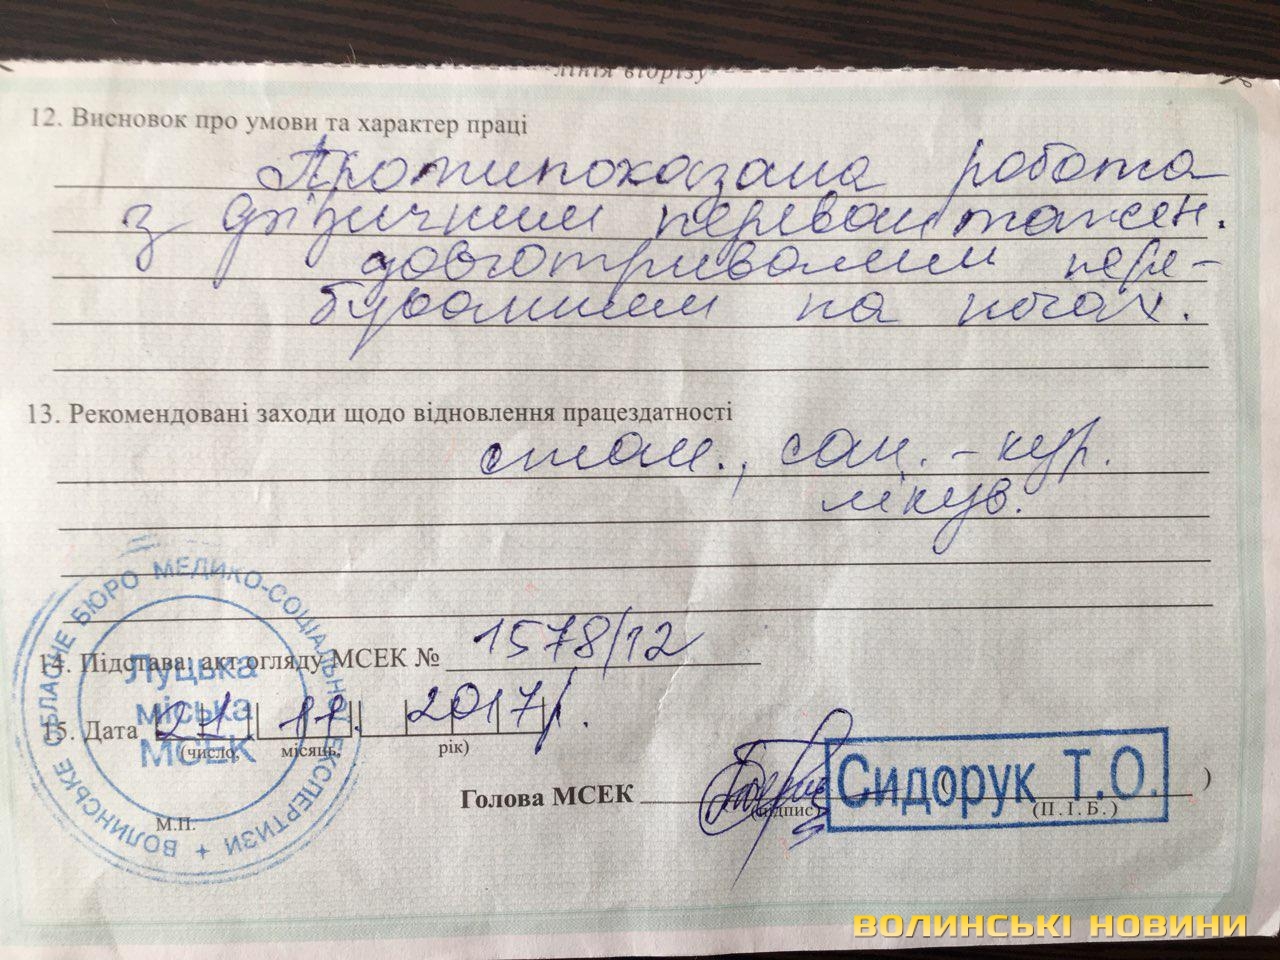 лінія відрізу
12. Висновок про умови та характер праці
Протипоказана робота
з фізичним перевантажен.
довготривалим пере-
буванням на ногах.
13. Рекомендовані заходи щодо відновлення працездатності
стац., сан.-кур.
лікув.
14. Підстава: акт огляду МСЕК № 1578/12
15. Дата 21 11. 2017
(число, місяць, рік)
Голова МСЕК
Сидорук Т.О.
(підпис) (П.І.Б.)
М.П.
ВОЛИНСЬКЕ ОБЛАСНЕ БЮРО МЕДИКО-СОЦІАЛЬНОЇ ЕКСПЕРТИЗИ
Луцька
міська
МСЕК
ВОЛИНСЬКІ НОВИНИ